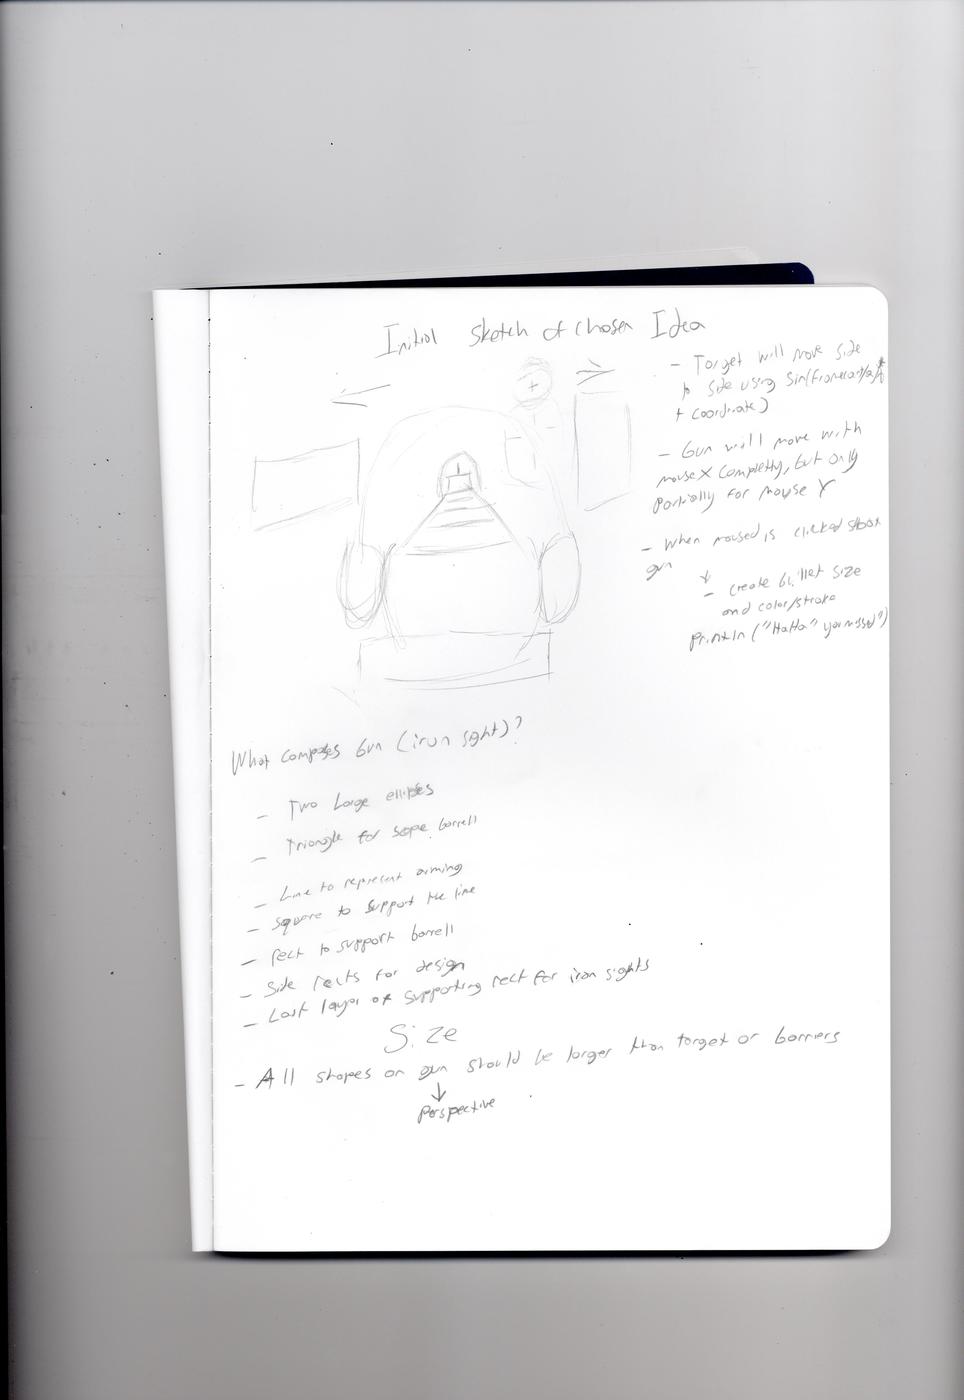 Initial Sketch of Chosen Idea
- Target will move side
to side using Sin(
+ coordinate)
- Gun will move with
mouse X completly, but only
partially for mouse Y
- When moused is clicked shoot
gun
- create bullet size
and color/stroke
Println ("HaHa" you missed")
What composes Gun (iron sight)?
- Two Large ellipses
- Triangle for scope barrell
- Line to represent aiming
- Square to support the line
- rect to support barrell
- Side rects for design
- Last layer of supporting rect for iron sights
Size
- All shapes on gun should be larger than target or barriers
Perspective